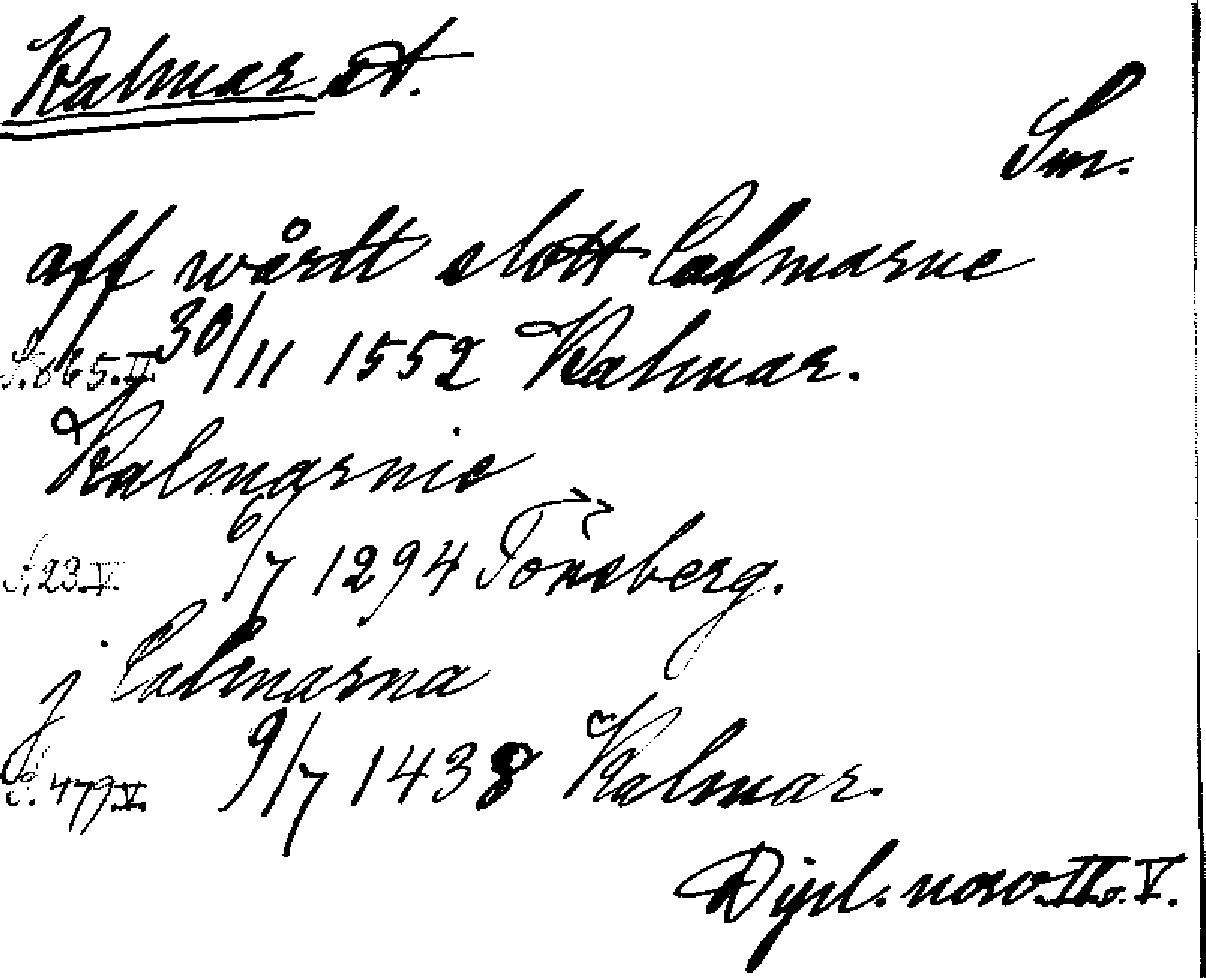 Kalmar st.
Sm.
aff wårdt slott Calmarne
S. 665. II. 30/11 1552 Kalmar.
Kalmarnie
S. 23. V. 6/7 1294 Tönsberg.
j Calmarna
S. 479. V. 9/7 1438 Kalmar.
Dipl. norv. II o. V.